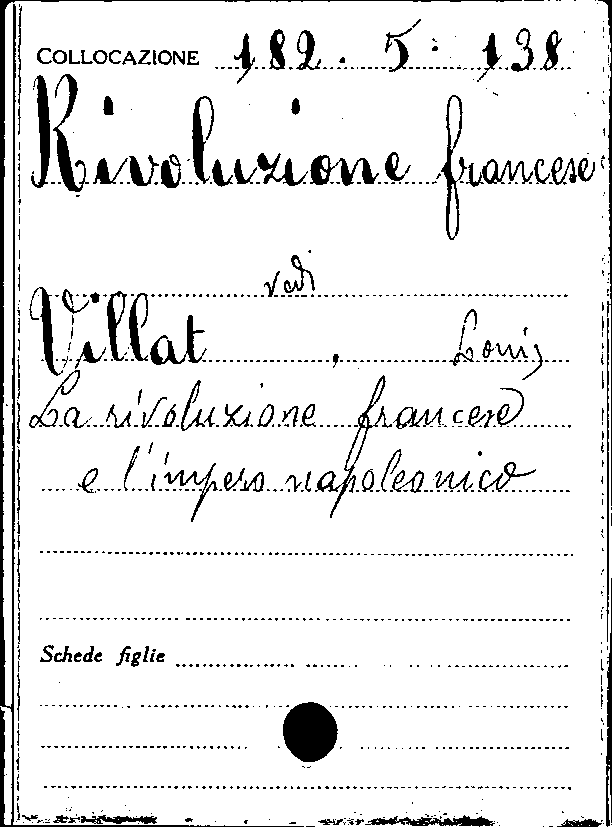 COLLOCAZIONE 182. 5: 138
Rivoluzione francese
vedi
Villat, Louis
La rivoluzione francese
e l'impero napoleonico
Schede figlie